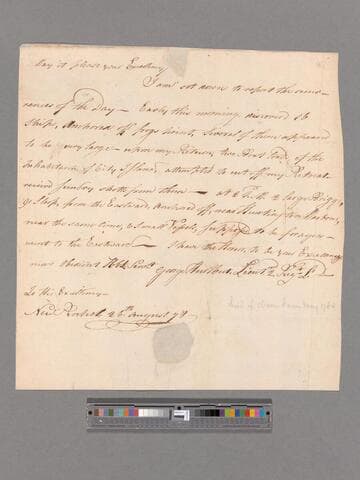 May it please your Excellency
I am set down to report the occur-
rences of the Day — Early this morning discovered 16
Ships, Anchored off frogs point, several of them appeared
to be very large — upon my Return, two Boat Loads of the
Inhabitants of City Island attempted to cut off my Retreat
received Number shotts from them — at 2 large Briggs,
Ships from the Eastward Anchored off near Huntington Harbour,
near the same time, 2 small Vessels supposed to be foragers
went to the Eastward — I have the Honor, to be your Excellency's
most obedient Hble Servt
George Hurlbut Lieut 2 Regt L D
To His Excellency
New Rochel 26th August 78